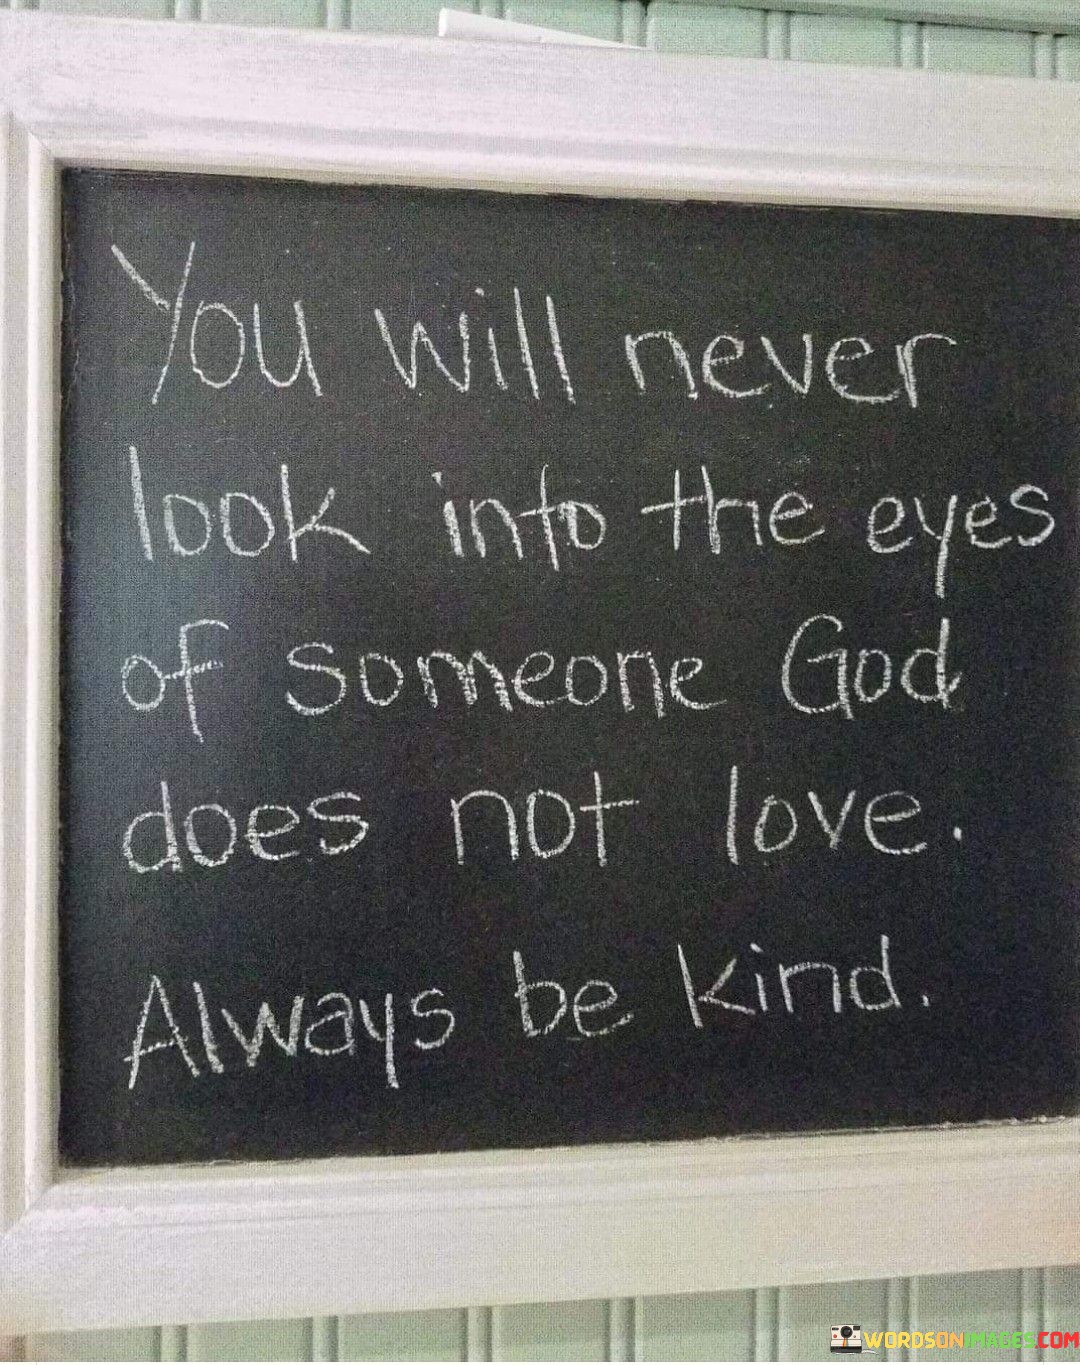 You will never
look into the eyes
of someone God
does not love.
Always be kind.
WORDSONIMAGES.COM